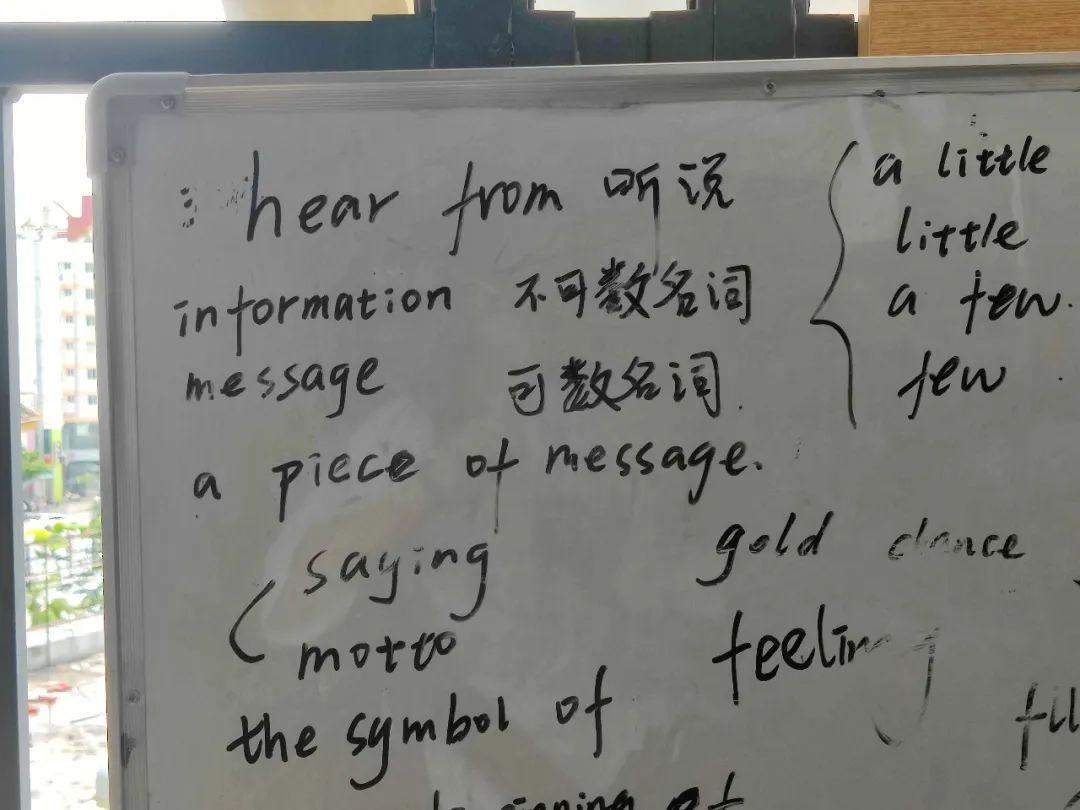 hear from 听说
information 不可数名词
message 可数名词
a piece of message.
a little
little
a few.
few
saying
motto
the symbol of
gold
feeling
of